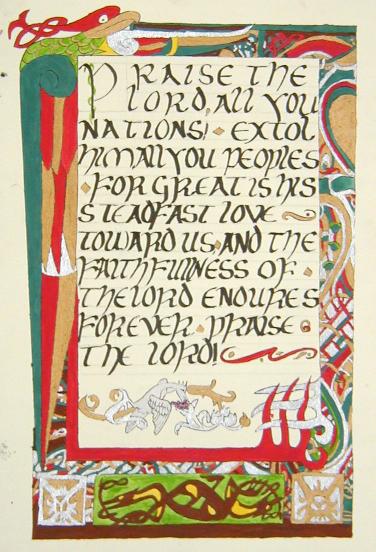 PRAISE THE
LORD, All YOU
NATIONS! EXTOL
HIM All YOU PEOPLES
FOR GREAT IS HIS
STEADFAST LOVE
TOWARD US, AND THE
FAITHFULNESS OF
THE LORD ENDURES
FOREVER PRAISE
THE LORD!